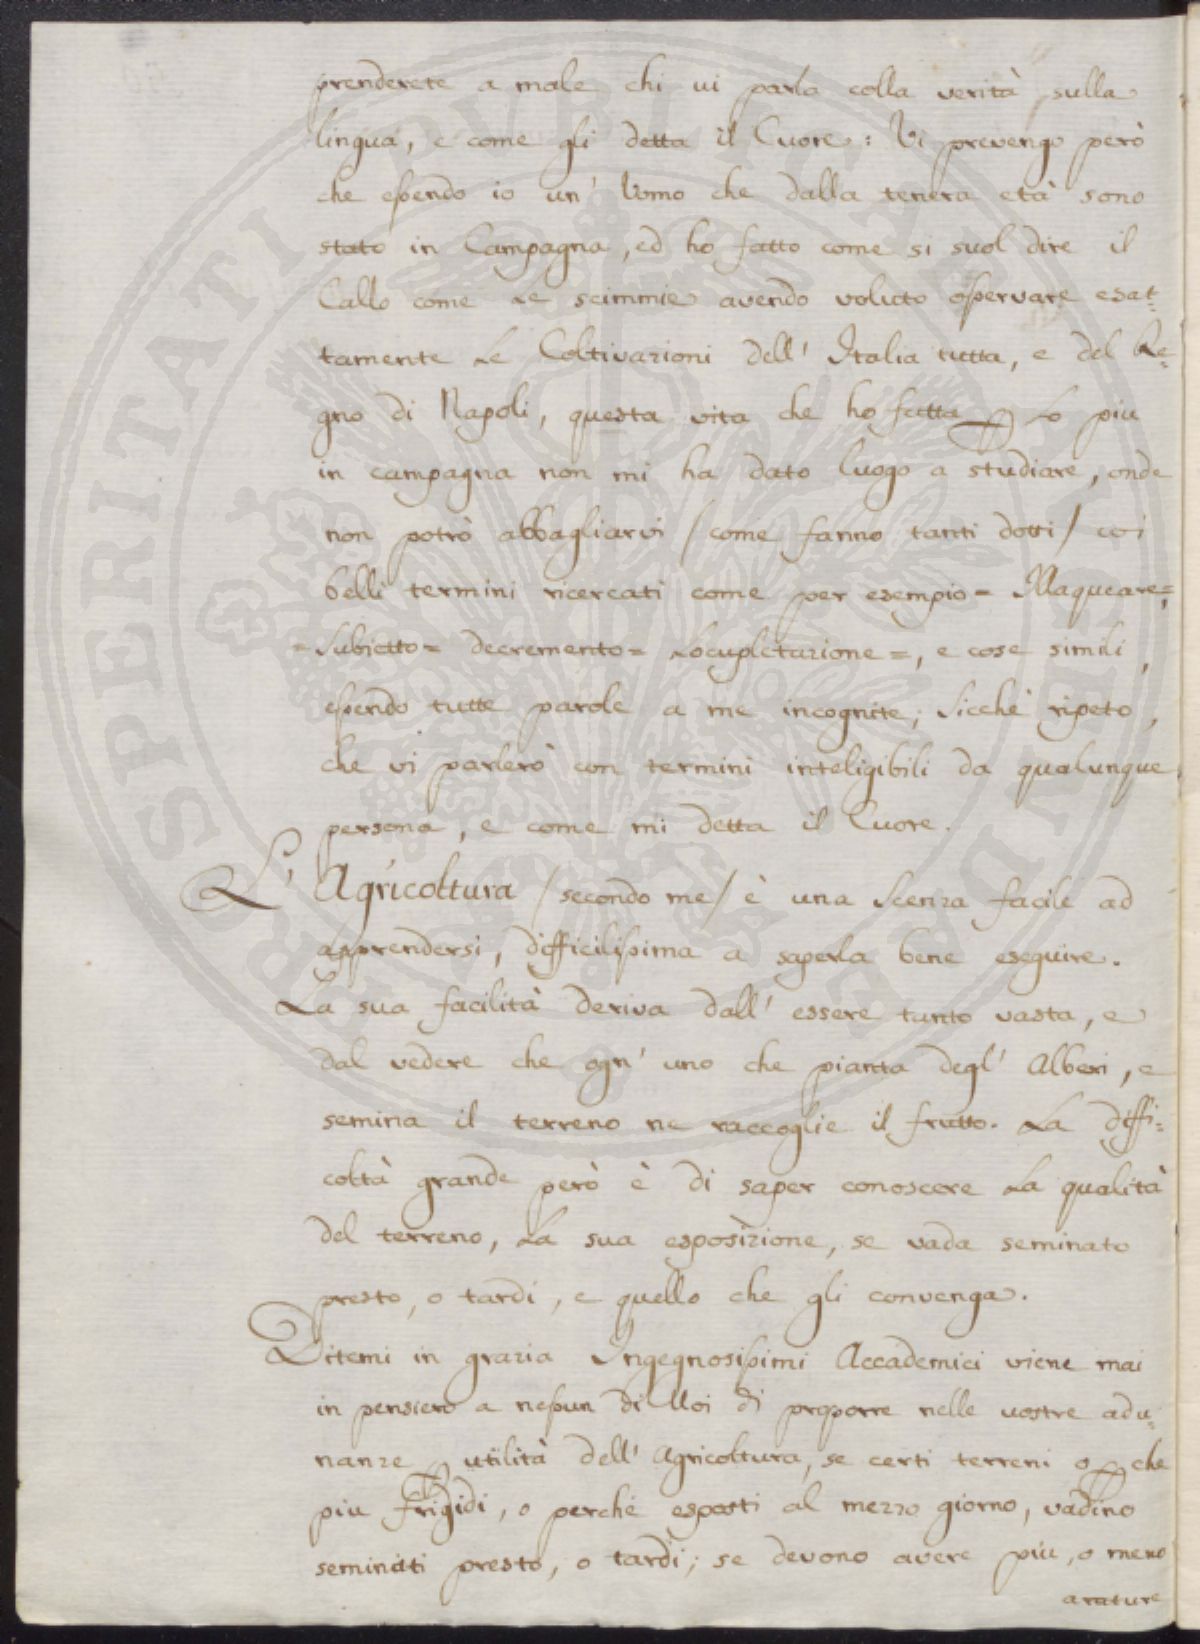 prenderete a male chi vi parla colla verità sulla
lingua, e come gli detta il Cuore: Vi prevengo però
che essendo io un' Uomo che dalla tenera età sono
stato in Campagna, ed ho fatto come si suol dire il
Callo come Le scimmie avendo voluto osservare esat=
tamente Le Coltivazioni dell' Italia tutta, e del Re=
gno di Napoli, questa vita che ho fatta p Lo piu
in campagna non mi ha dato luogo a studiare, onde
non potrò abbagliarvi /come fanno tanti dotti/ coi
belli termini ricercati come per esempio= Illaqueare=,
=Subietto= decremento= Locupletazione=, e cose simili,
essendo tutte parole a me incognite; Sicchè ripeto,
che vi parlerò con termini inteligibili da qualunque
persona, e come mi detta il Cuore.
L' Agricoltura /secondo me/ è una Scenza facile ad
apprendersi, difficilissima a saperla bene eseguire.
La sua facilità deriva dall' essere tanto vasta, e
dal vedere che ogn' uno che pianta degl' Alberi, e
semina il terreno ne raccoglie il frutto. La diffi=
coltà grande però è di saper conoscere La qualità
del terreno, La sua esposizione, se vada seminato
presto, o tardi, e quello che gli convenga.
Ditemi in grazia Ingegnosissimi Accademici viene mai
in pensiero a nessun di Voi di proporre nelle vostre adu=
nanze p utilità dell' Agricoltura, se certi terreni o p che
piu frigidi, o perchè esposti al mezzo giorno, vadino
seminati presto, o tardi; se devono avere più, o meno
arature
PROSPERITATI PVBLICAE AVGENDAE